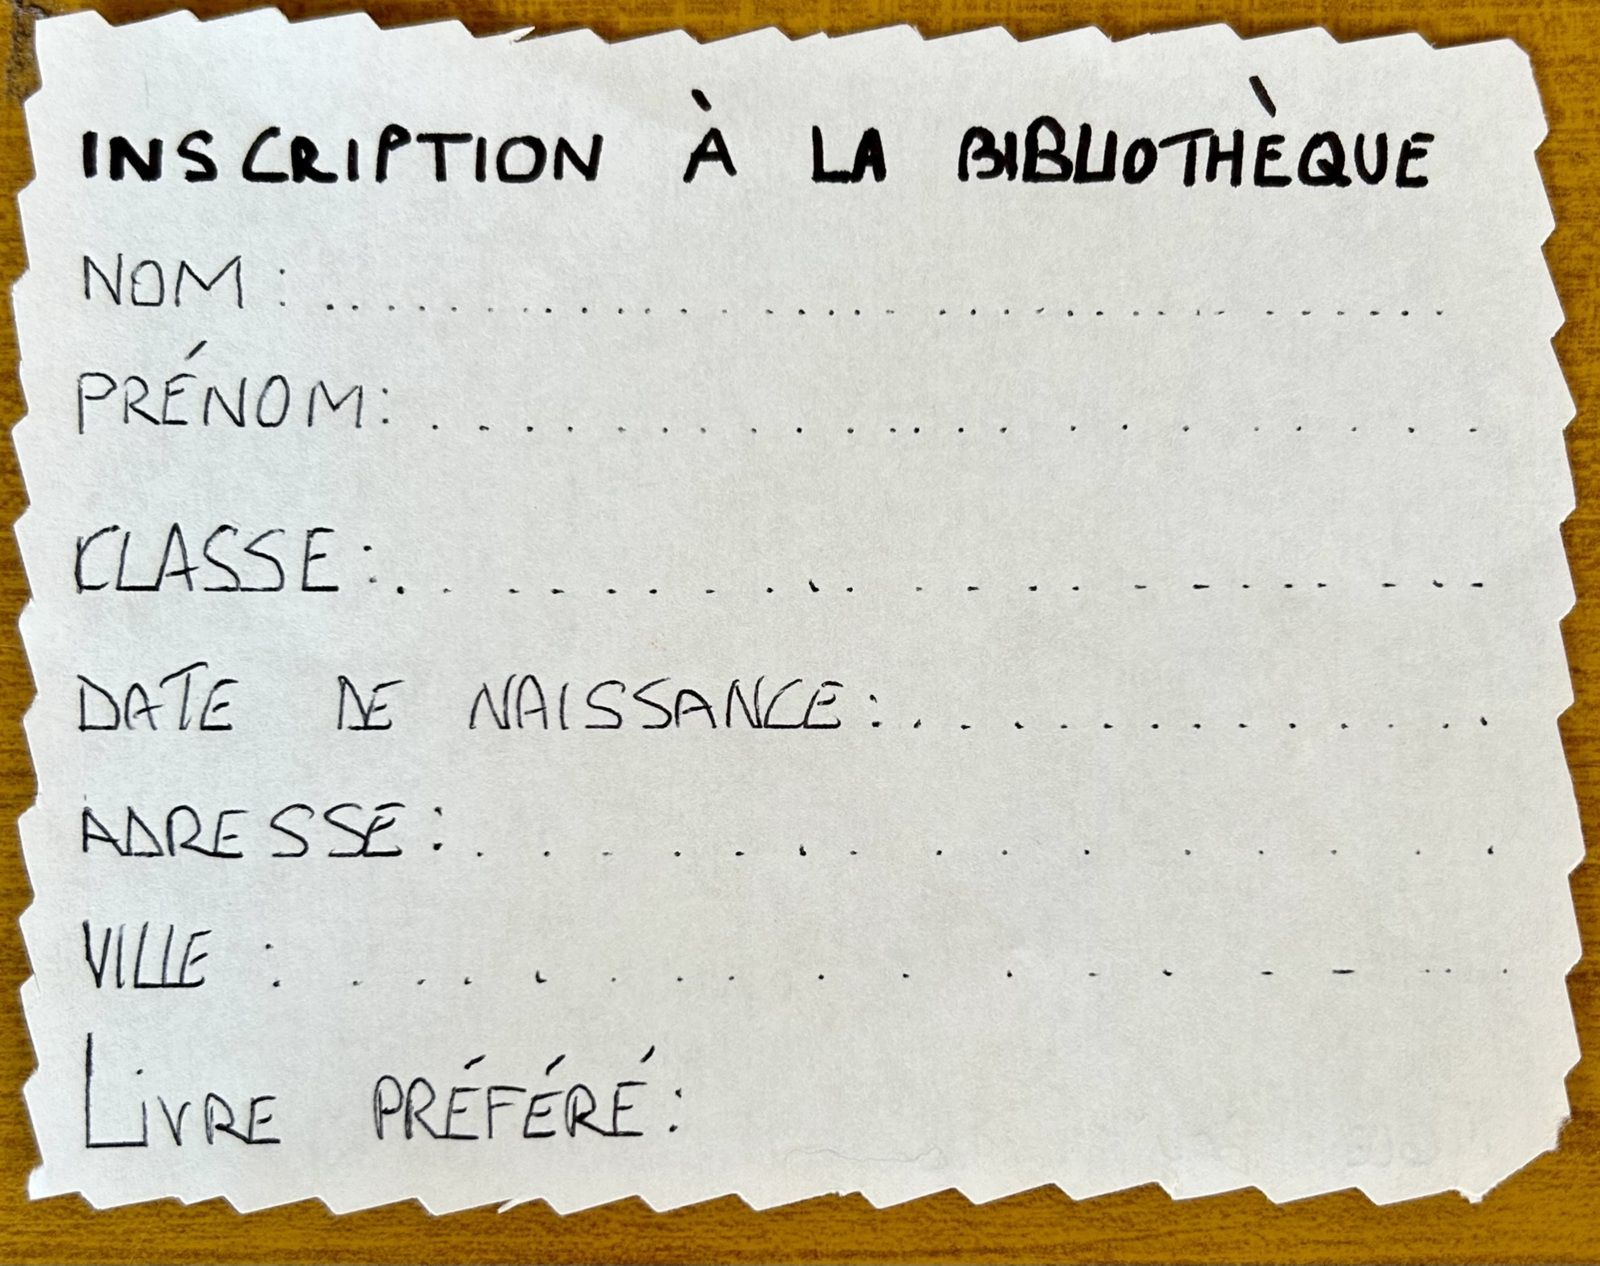 INSCRIPTION À LA BIBLIOTHÈQUE
NOM : ..............................
PRÉNOM: ......................
CLASSE: ..................
DATE DE NAISSANCE: .............
ADRESSE: ...............
VILLE : ................
LiVRE PRÉFÉRÉ: